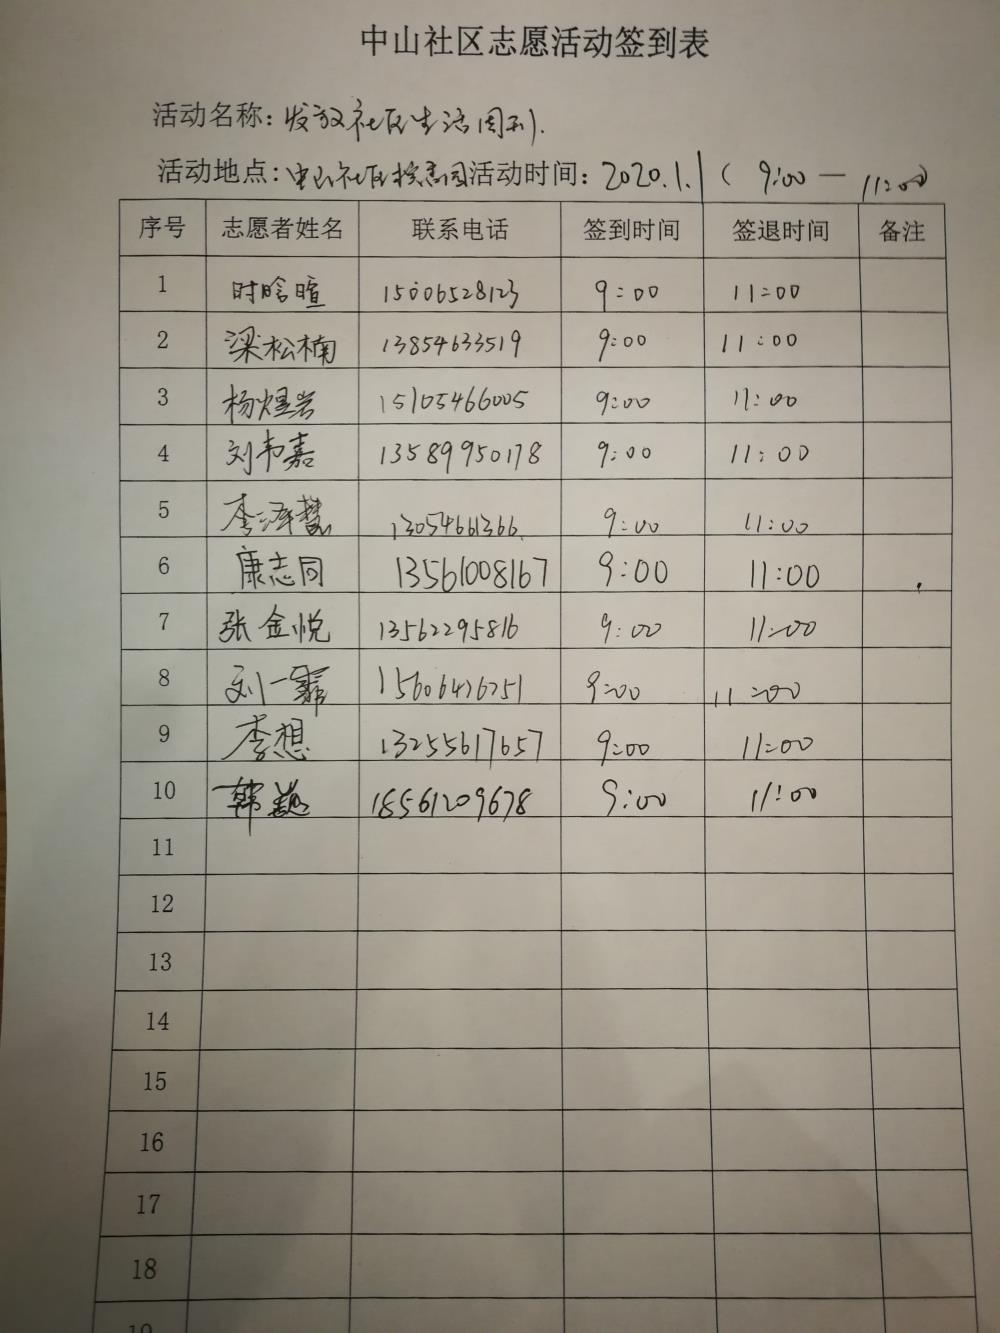 中山社区志愿活动签到表
活动名称：发放社区生活周刊.
活动地点：中山社区 活动时间：2020.1.1（9:00—11:00）
序号 志愿者姓名 联系电话 签到时间 签退时间 备注
1 时晗暄 15006528123 9:00 11:00
2 梁松楠 13854633519 9:00 11:00
3 杨煜岩 15105466005 9:00 11:00
4 刘韦嘉 13589950178 9:00 11:00
5 李泽慧 13054661366. 9:00 11:00
6 康志同 13561008167 9:00 11:00
7 张金悦 13562295816 9:00 11:00
8 刘一霏 15606476251 9:00 11:00
9 李想 13255617657 9:00 11:00
10 韩 18561209678 9:00 11:00
11
12
13
14
15
16
17
18
19